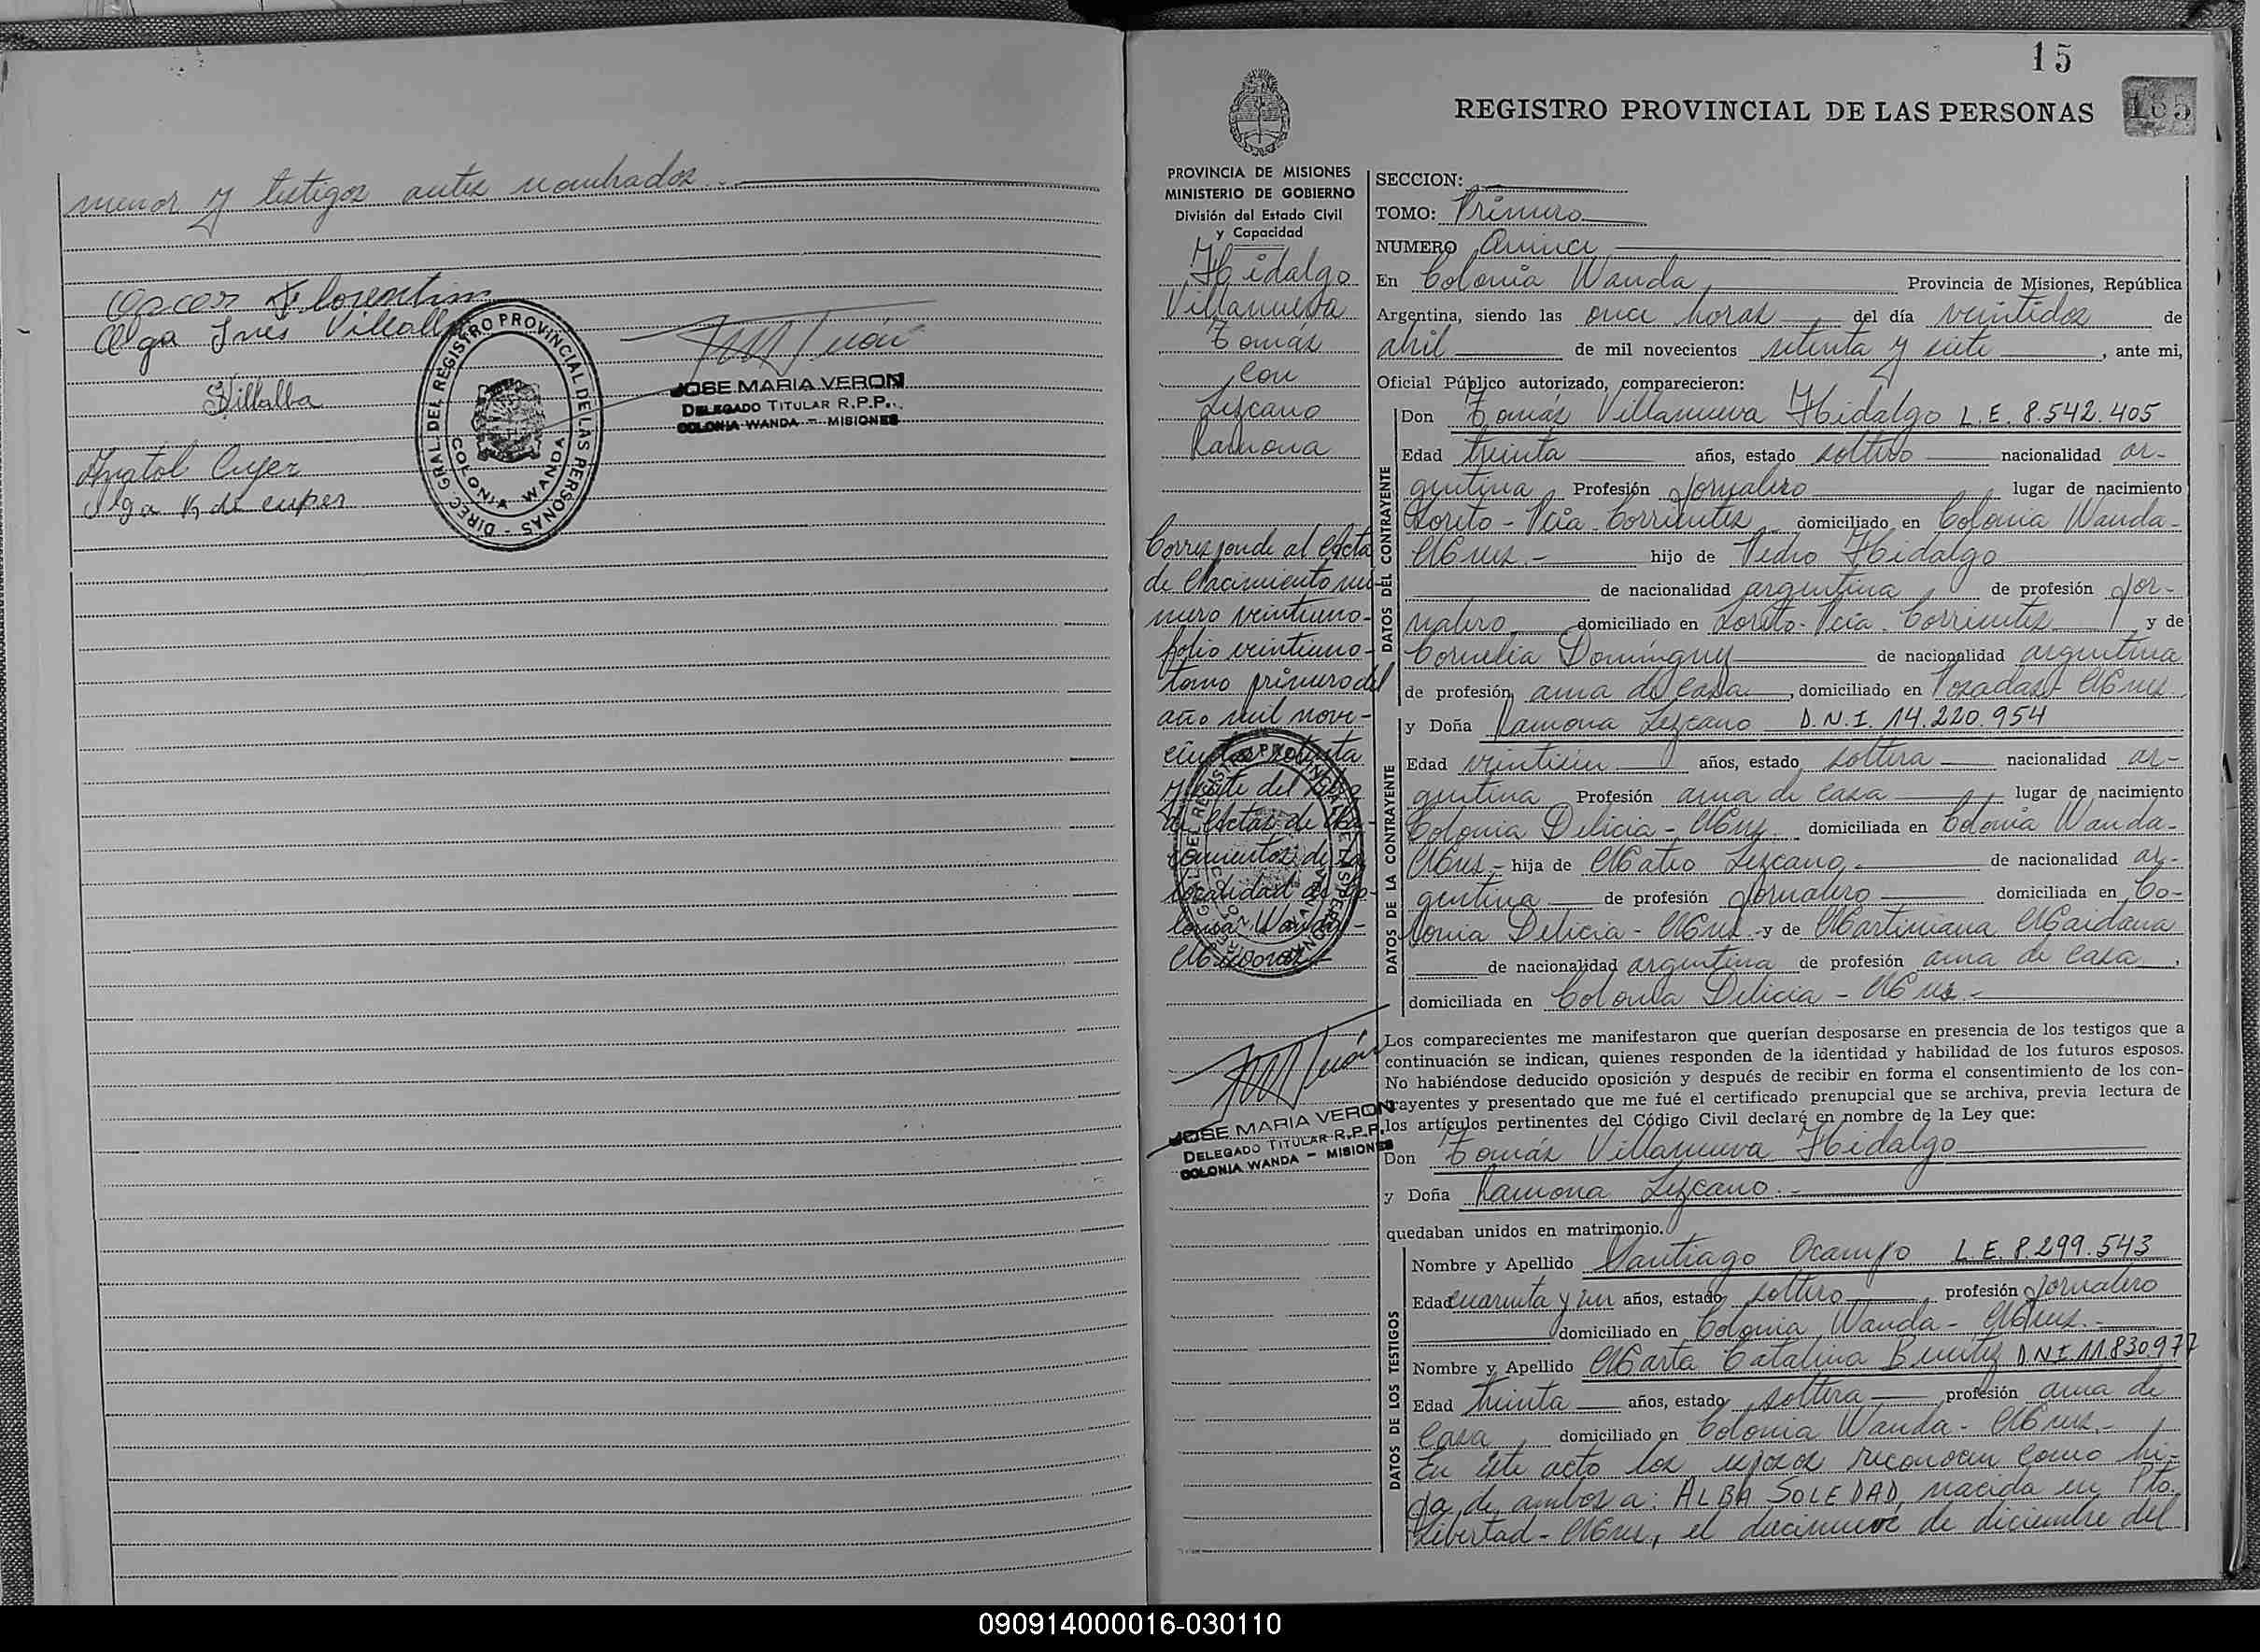 menor y testigos antes nombrados.
Oscar Florentin
Olga Ines Villalba
Villalba
JOSE MARIA VERON
DELEGADO TITULAR R.P.P.
COLONIA WANDA - MISIONES
DIREC. GRAL DEL REGISTRO PROVINCIAL DE LAS PERSONAS -
COLONIA WANDA
Anatol Cuper
Olga K de cuper
15
REGISTRO PROVINCIAL DE LAS PERSONAS
PROVINCIA DE MISIONES
MINISTERIO DE GOBIERNO
División del Estado Civil
y Capacidad
Hidalgo
Villanueva
Tomás
con
Lezcano
Ramona
Corresponde al Acta
de Nacimiento nú
mero veintiuno-
folio veintiuno-
tomo primero del
año mil nove-
cientos setenta
y siete del libro
de Actas de Na-
cimientos de la
localidad de Co-
lonia Wanda-
Misiones.-
JOSE MARIA VERON
DELEGADO TITULAR R.P.P.
COLONIA WANDA - MISIONES
SECCION:
TOMO: Primero
NUMERO Quince
En Colonia Wanda, Provincia de Misiones, República
Argentina, siendo las once horas del día veintidos de
abril de mil novecientos setenta y siete, ante mi,
Oficial Público autorizado, comparecieron:
DATOS DEL CONTRAYENTE
Don Tomás Villanueva Hidalgo L.E. 8.542.405
Edad treinta años, estado soltero nacionalidad ar-
gentina Profesión Jornalero lugar de nacimiento
Loreto - Pcia. Corrientes domiciliado en Colonia Wanda-
Mnes.- hijo de Pedro Hidalgo
de nacionalidad argentina de profesión Jor-
nalero domiciliado en Loreto - Pcia. Corrientes y de
Cornelia Domínguez de nacionalidad argentina
de profesión ama de casa, domiciliado en Posadas - Mnes
DATOS DE LA CONTRAYENTE
y Doña Ramona Lezcano D.N.I. 14.220.954
Edad veintiún años, estado soltera nacionalidad ar-
gentina Profesión ama de casa lugar de nacimiento
Colonia Delicia - Mnes. domiciliada en Colonia Wanda-
Mnes.- hija de Mateo Lezcano, de nacionalidad ar-
gentina de profesión Jornalero domiciliada en Co-
lonia Delicia - Mnes - y de Martiniana Maidana
de nacionalidad argentina de profesión ama de casa,
domiciliada en Colonia Delicia - Mnes.-
Los comparecientes me manifestaron que querían desposarse en presencia de los testigos que a
continuación se indican, quienes responden de la identidad y habilidad de los futuros esposos.
No habiéndose deducido oposición y después de recibir en forma el consentimiento de los con-
trayentes y presentado que me fué el certificado prenupcial que se archiva, previa lectura de
los artículos pertinentes del Código Civil declaré en nombre de la Ley que:
Don Tomás Villanueva Hidalgo
y Doña Ramona Lezcano.-
quedaban unidos en matrimonio.
DATOS DE LOS TESTIGOS
Nombre y Apellido Santiago Ocampo L.E. 8.299.543
Edad cuarenta y un años, estado soltero profesión Jornalero
domiciliado en Colonia Wanda - Mnes.-
Nombre y Apellido Marta Catalina Benítez DNI 11.830.977
Edad treinta años, estado soltera profesión ama de
casa domiciliado en Colonia Wanda - Mnes.-
En este acto los esposos reconocen como hi-
ja de ambos a: ALBA SOLEDAD, nacida en Pto.
Libertad - Mnes, el diecinueve de diciembre del
090914000016-030110